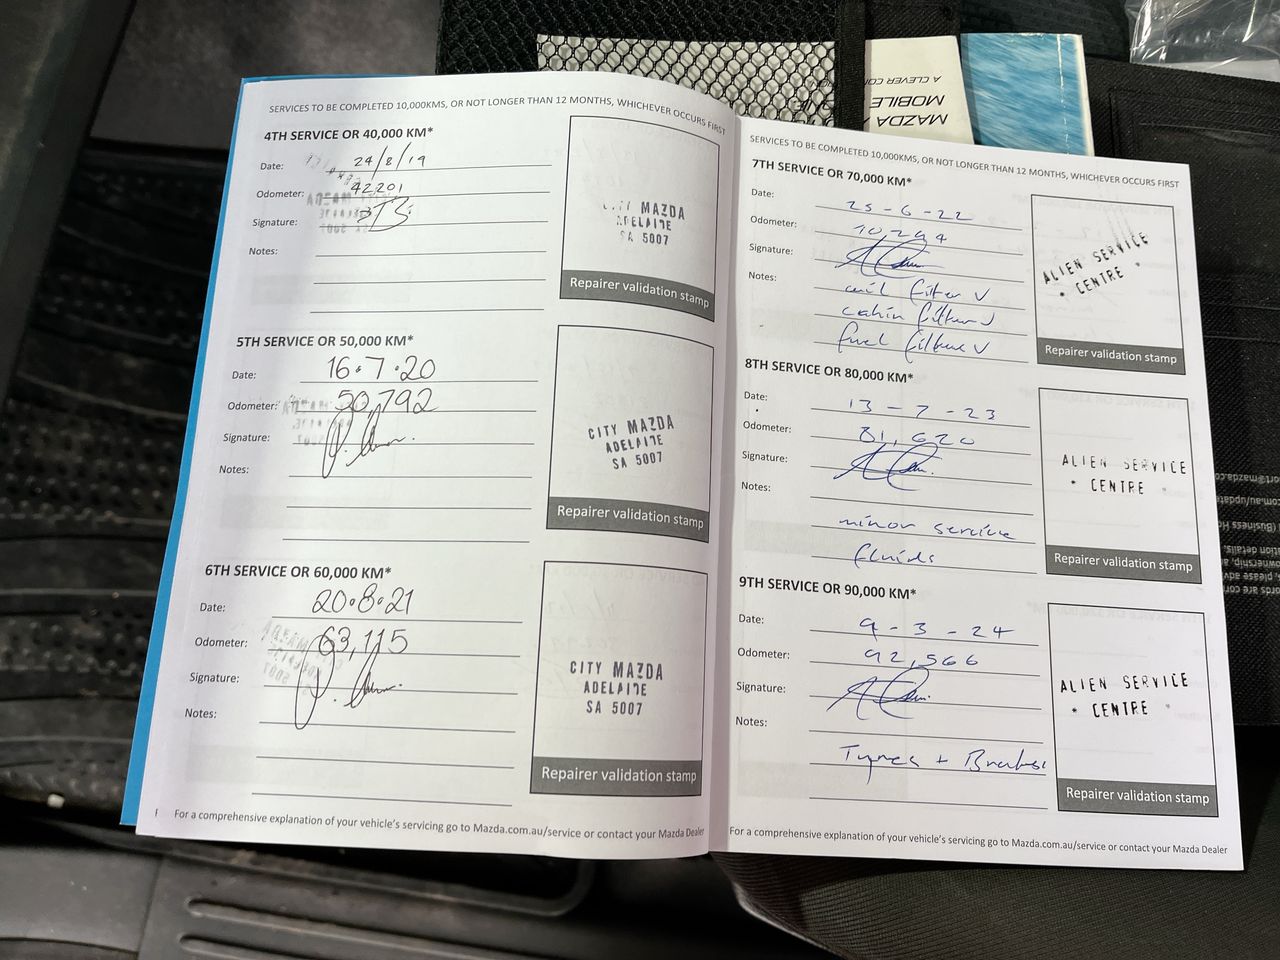 SERVICES TO BE COMPLETED 10,000KMS, OR NOT LONGER THAN 12 MONTHS, WHICHEVER OCCURS FIRST
4TH SERVICE OR 40,000 KM*
Date: 24/8/19
Odometer: 42201
Signature:
Notes:
MAZDA
ADELAIDE
SA 5007
Repairer validation stamp
5TH SERVICE OR 50,000 KM*
Date: 16.7.20
Odometer: 50,792
Signature:
Notes:
CITY MAZDA
ADELAIDE
SA 5007
Repairer validation stamp
6TH SERVICE OR 60,000 KM*
Date: 20.8.21
Odometer: 63,115
Signature:
Notes:
CITY MAZDA
ADELAIDE
SA 5007
Repairer validation stamp
For a comprehensive explanation of your vehicle's servicing go to Mazda.com.au/service or contact your Mazda Dealer
SERVICES TO BE COMPLETED 10,000KMS, OR NOT LONGER THAN 12 MONTHS, WHICHEVER OCCURS FIRST
7TH SERVICE OR 70,000 KM*
Date: 25-6-22
Odometer: 70,294
Signature:
Notes: oil filter ✓
cabin filter ✓
fuel filter ✓
ALIEN SERVICE
* CENTRE *
Repairer validation stamp
8TH SERVICE OR 80,000 KM*
Date: 13-7-23
Odometer: 81,620
Signature:
Notes:
minor service
fluids
ALIEN SERVICE
* CENTRE *
Repairer validation stamp
9TH SERVICE OR 90,000 KM*
Date: 9-3-24
Odometer: 92,566
Signature:
Notes:
Tyres + Brakes
ALIEN SERVICE
* CENTRE *
Repairer validation stamp
For a comprehensive explanation of your vehicle's servicing go to Mazda.com.au/service or contact your Mazda Dealer
MAZDA
MOBILE
A CLEVER